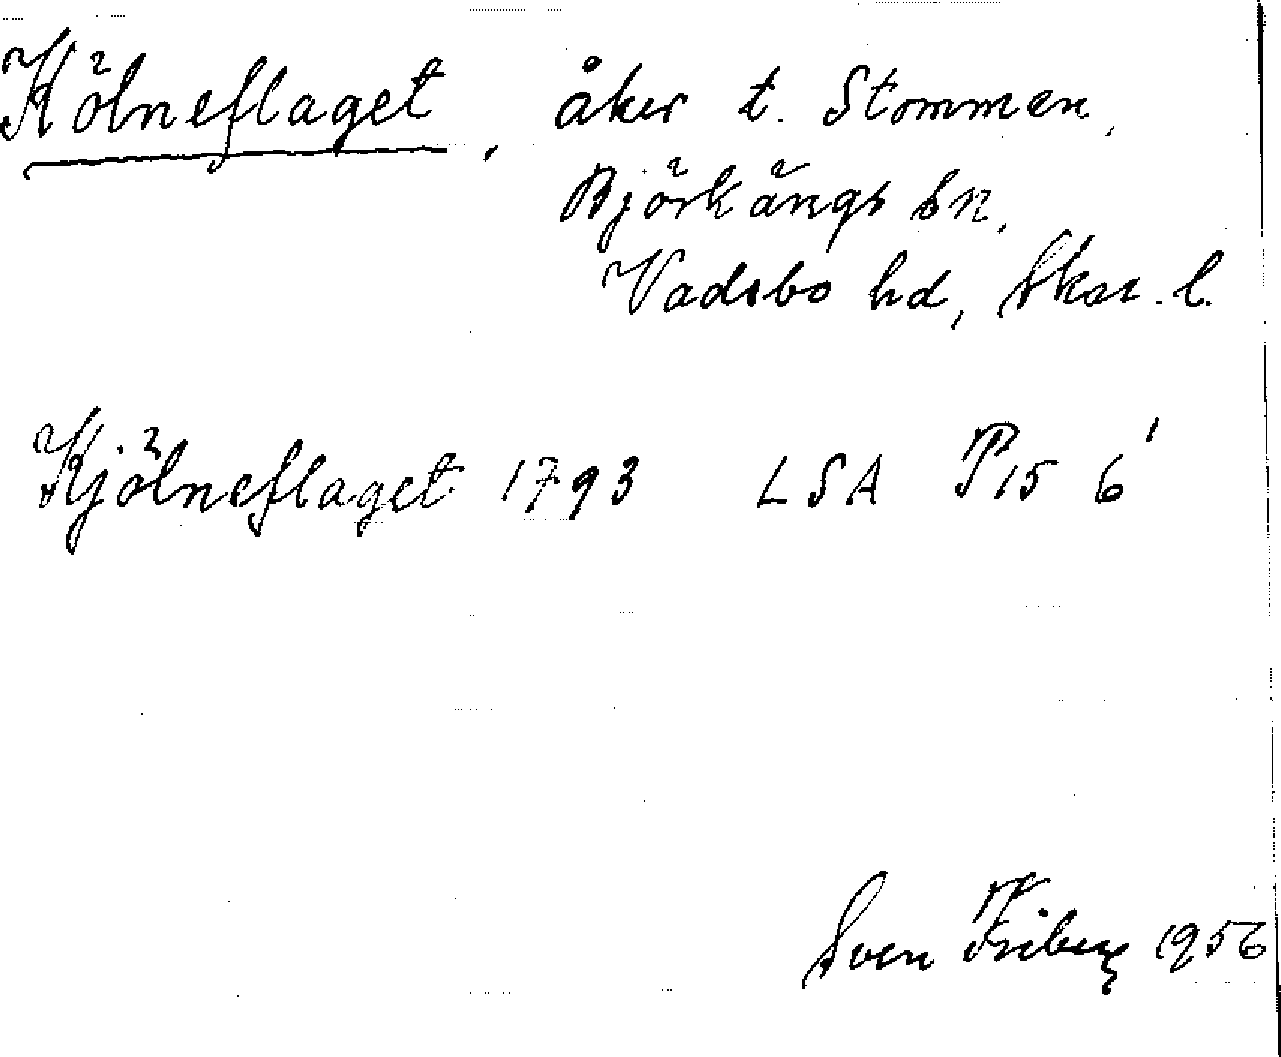 Kölneflaget, åker t. Stommen,
Björkängs sn,
Vadsbo hd, Skar. l.
Kjölneflaget 1793 LSA P15 6¹
Sven Friberg 1956